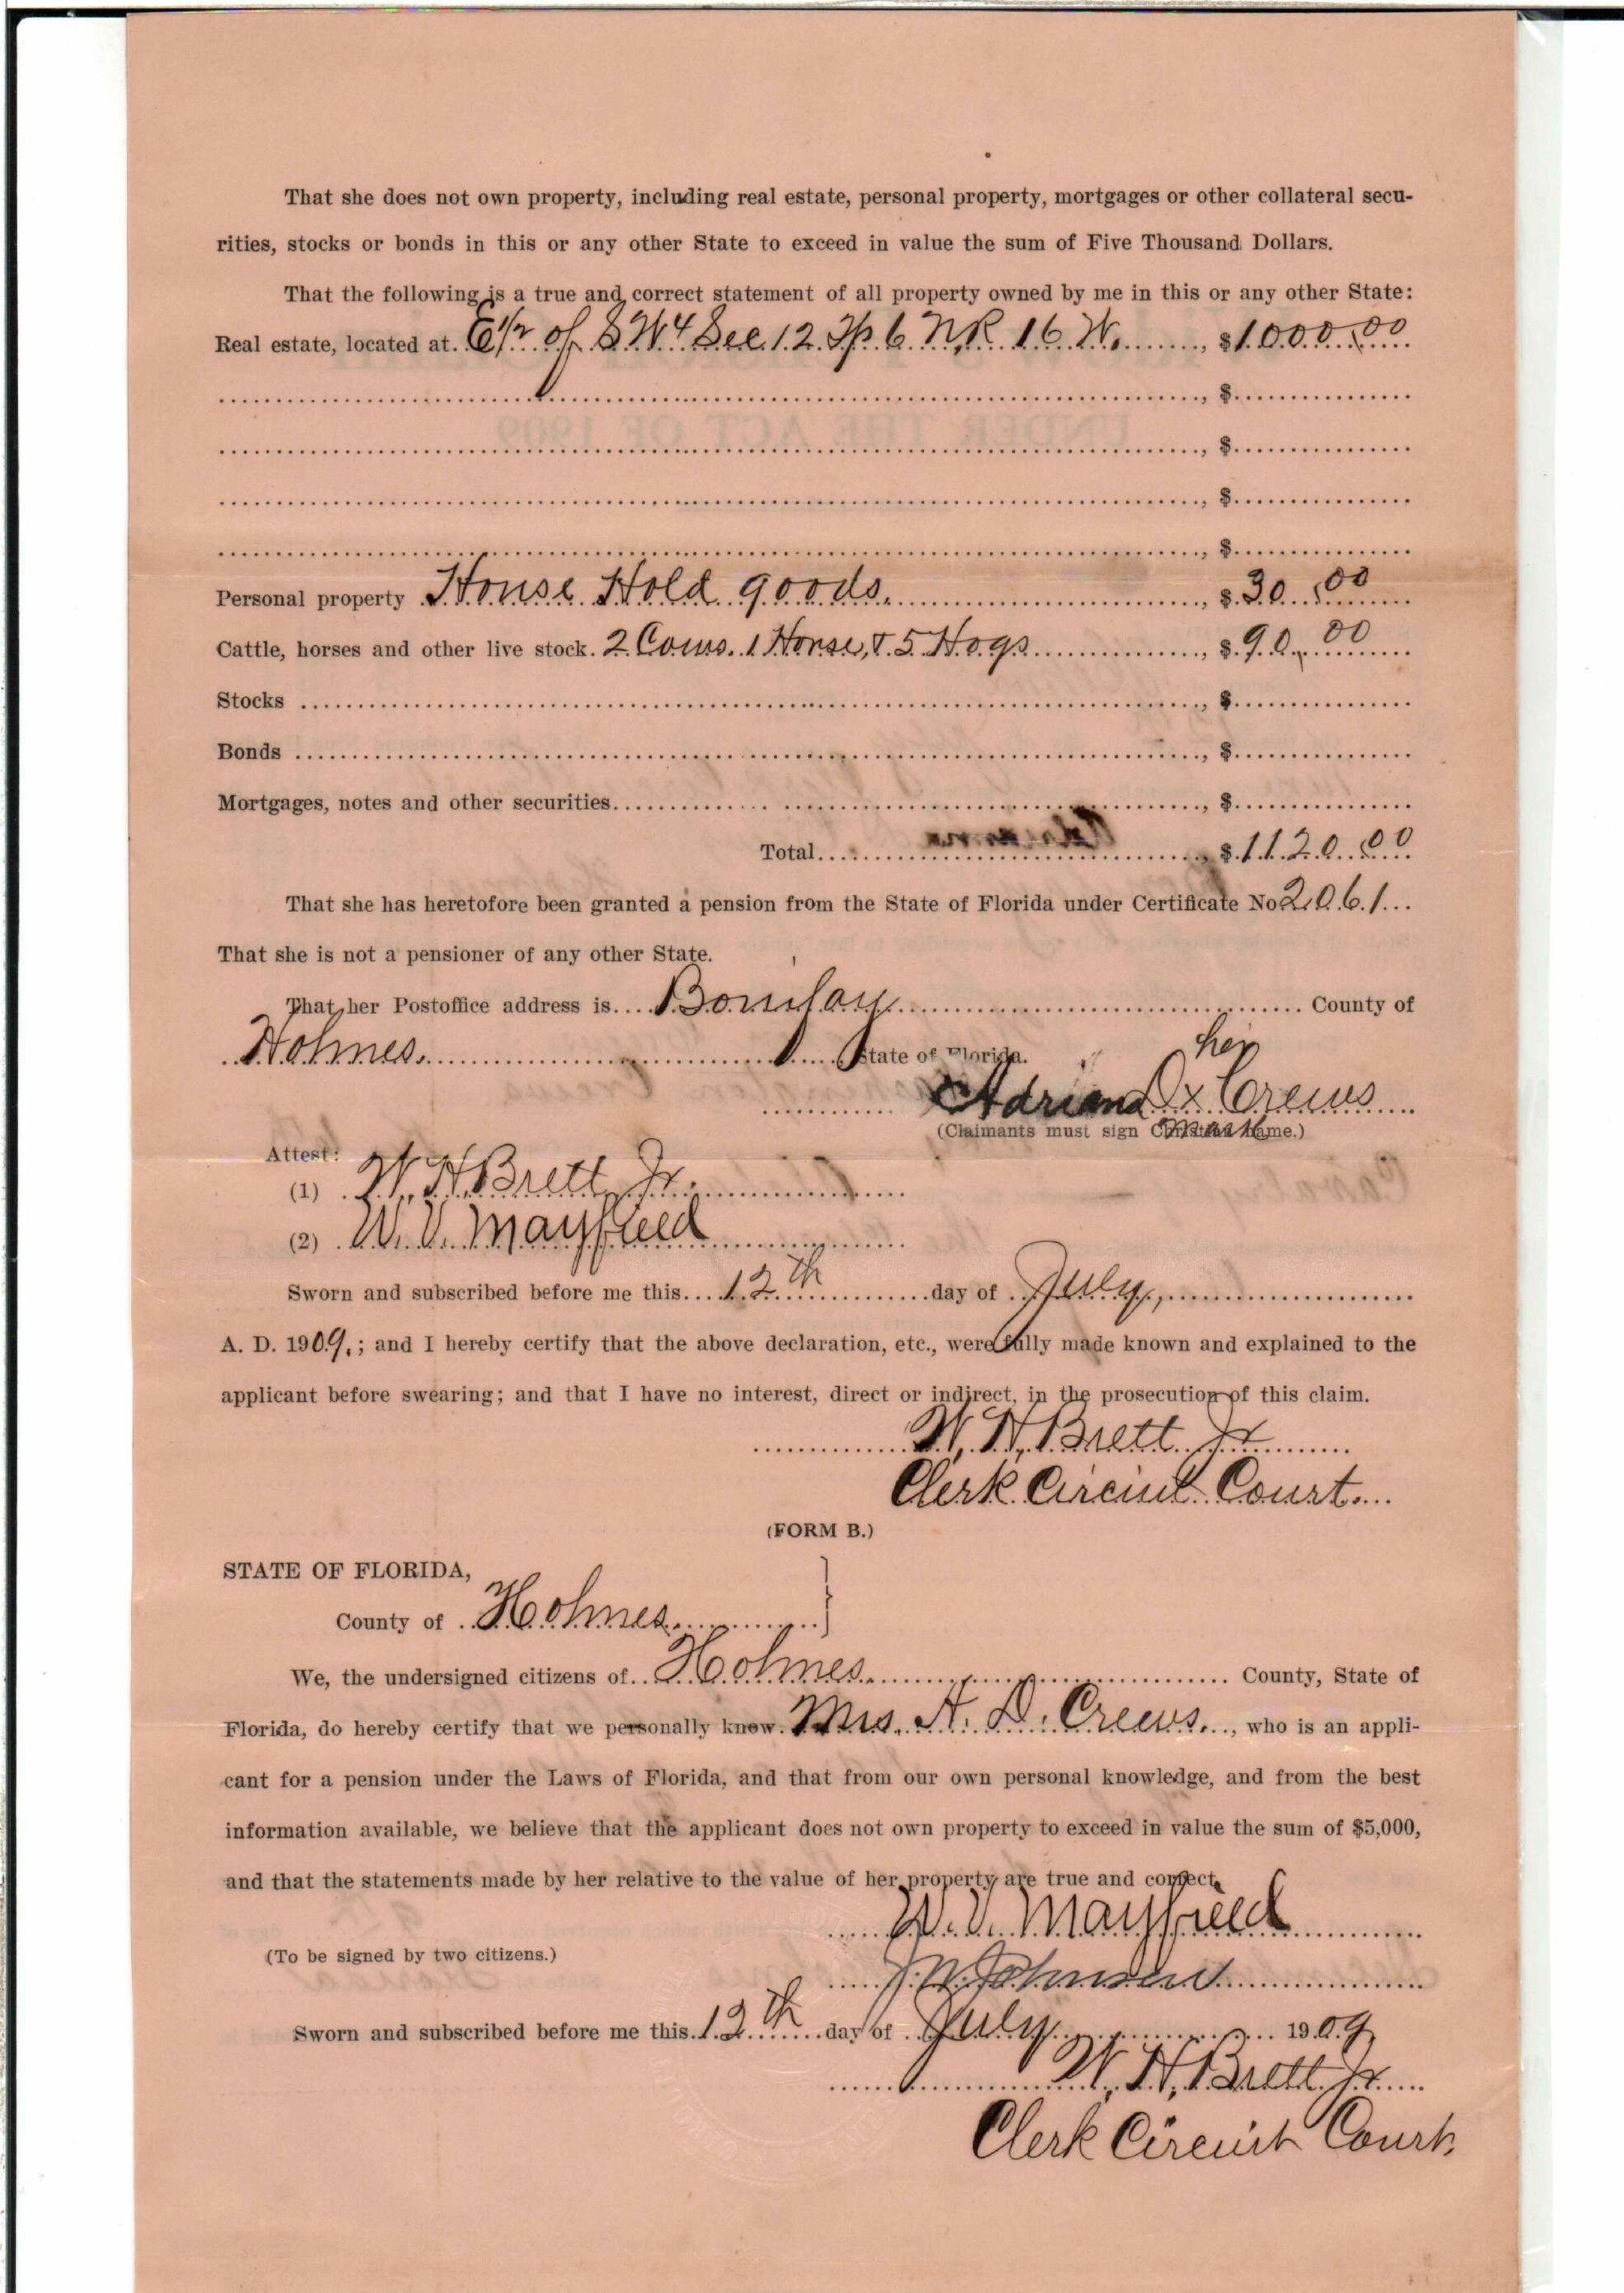 That she does not own property, including real estate, personal property, mortgages or other collateral secu-
rities, stocks or bonds in this or any other State to exceed in value the sum of Five Thousand Dollars.
That the following is a true and correct statement of all property owned by me in this or any other State:
Real estate, located at. E 1/2 of S W 4 Sec 12 Tp 6 N, R 16 W. , $1000.00
, $
, $
, $
, $
Personal property House Hold goods. , $ 30.00
Cattle, horses and other live stock. 2 Cows. 1 Horse, & 5 Hogs , $ 90.00
Stocks , $
Bonds , $
Mortgages, notes and other securities. , $
Total , $ 1120.00
That she has heretofore been granted a pension from the State of Florida under Certificate No 2061
That she is not a pensioner of any other State.
That her Postoffice address is County of
Holmes. State of Florida.
her
Adriana D x Crews
mark
(Claimants must sign Christian name.)
Attest:
(1) W. H. Brett Jr.
(2) W. V. Mayfield
Sworn and subscribed before me this 12th day of July,
A. D. 1909.; and I hereby certify that the above declaration, etc., were fully made known and explained to the
applicant before swearing; and that I have no interest, direct or indirect, in the prosecution of this claim.
W. H. Brett Jr
Clerk Circuit Court.
(FORM B.)
STATE OF FLORIDA,
County of Holmes.
We, the undersigned citizens of Holmes. County, State of
Florida, do hereby certify that we personally know Mrs. A. D. Crews. , who is an appli-
cant for a pension under the Laws of Florida, and that from our own personal knowledge, and from the best
information available, we believe that the applicant does not own property to exceed in value the sum of $5,000,
and that the statements made by her relative to the value of her property are true and correct.
W. V. Mayfield
(To be signed by two citizens.)
J. W. Johnson
Sworn and subscribed before me this 12th day of July 1909
W. H. Brett Jr
Clerk Circuit Court.